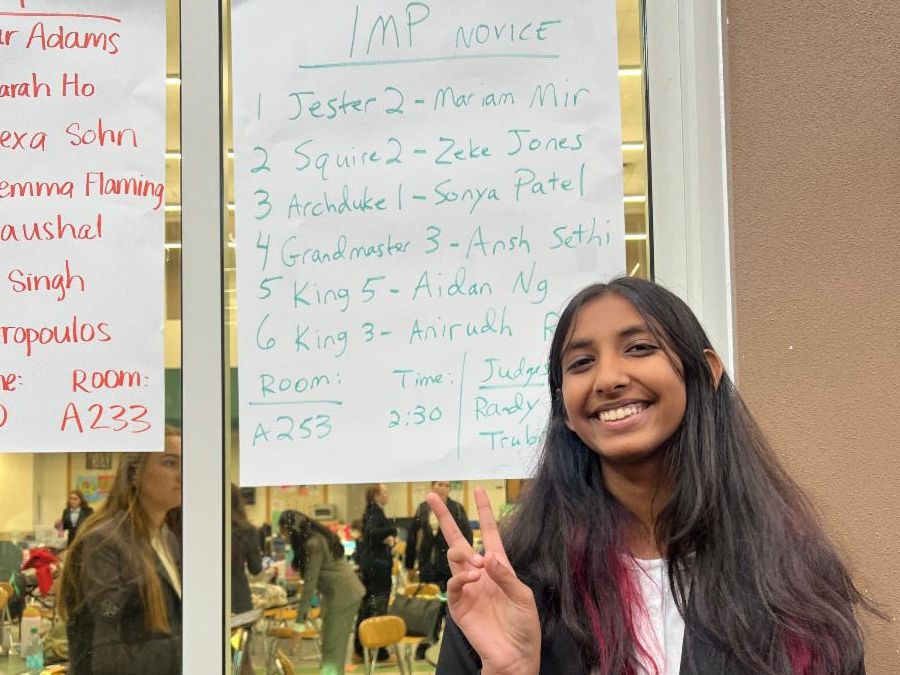 Adams
Ho
Sohn
Flaming
Singh
ROOM:
A233
IMP NOVICE
1 Jester 2 - Mariam Mir
2 Squire 2 - Zeke Jones
3 Archduke 1 - Sonya Patel
4 Grandmaster 3 - Ansh Sethi
5 King 5 - Aidan Ng
6 King 3 - Anirudh
Room: Time: Judges
A253 2:30 Randy